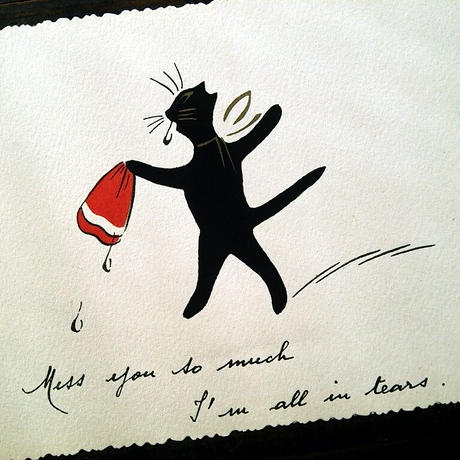 Miss you so much
I'm all in tears.